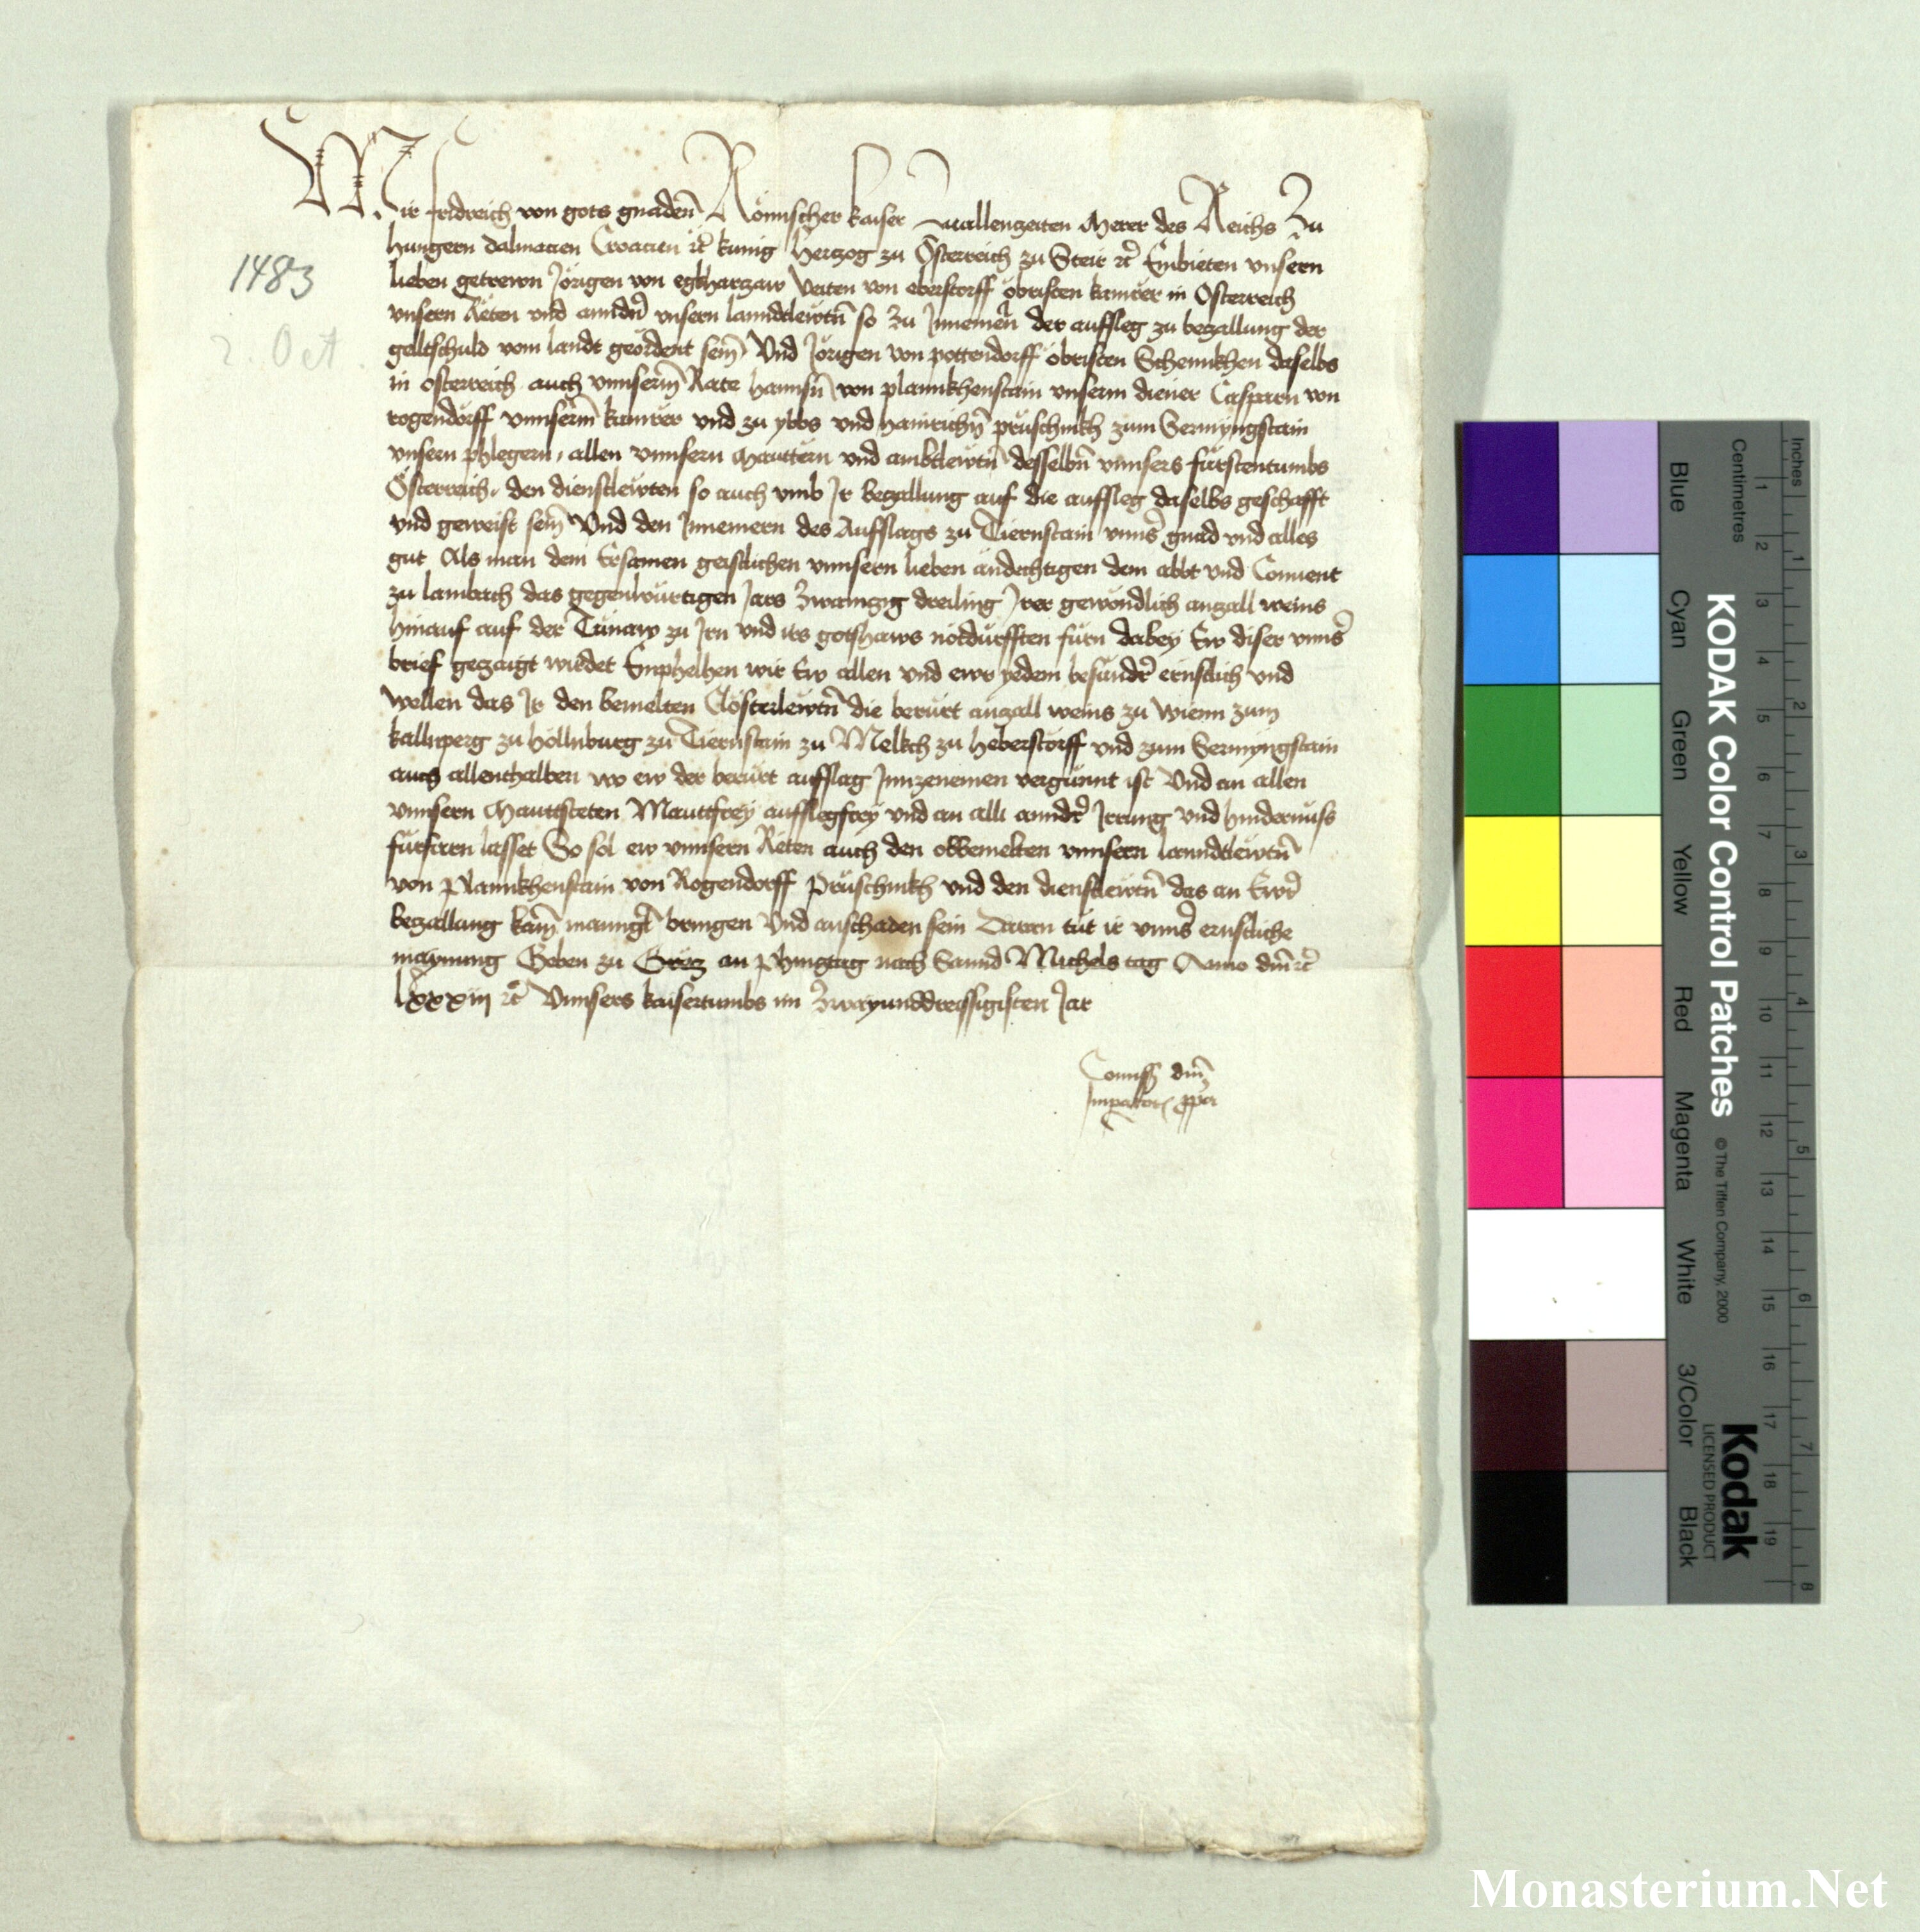 Wir fridreich von gots gnadeñ Römischer kaiser Zuallenzeiten Merer des Reichs Zu
hungern dalmacien Croacien ꝛc̃ kunig Hertzog zu Österreich zu Steir ꝛc̃ Embieten vnsern
1483
lieben getrewn Jörigen von egkhartzaw Veiten von eberstorff öbristen kamrer in Österreich
vnsern Räten vnd annd̃n vnsern lanndtlewtñ so zu Innemeñ der auffleg zu bezallung der
2. Oct.
geltschuld vom landt geördent seiñ Vnd Jörigen von pottendorff öbristen Schennkhen daselbs
in österreich auch vnnserm̃ Rate hannsñ von plannkhenstain vnserm diener Casparn von
rogendorff vnnserm̃ kamrer vnd zu ybbs vnd hainrichñ prüschinkh zum Sermyngstain
vnsern phlegern, allen vnnsern Mauttern vnd ambtlewtñ desselbñ vnnsers fürstentumbs
Österreich, den dienstlewten so auch vmb Ir bezallung auf die auffleg daselbs geschafft
vnd geweist seiñ Vnd den Innemern des Aufflags zu Tiernstain vnns̃ gnad vnd alles
gut Als man dem Ersamen geistlichen vnnsern lieben andechtigen dem abbt vnd Conuent
zu lambach das gegenbürtigen Jars Zwainzig dreiling Irer gewöndlich anzall weins
hinauf auf der Tünaw zu Irn vnd irs gotshaws notdürfften fürn dabey Ew diser vnns̃
brief gezaigt wirdet Emphelhen wir Ew allen vnd ewr yedem besunndr̃ ernstlich vnd
wellen das Ir den bemelten Clösterlewtñ die berürt anzall weins zu Wienn zum
kallnperg zu höllnburg zu Tiernstain zu Melkch zu heberstorff vnd zum Sermyngstain
auch allenthalben wo ew der berürt aufflag Innzenemen vergünnt ist Vnd an allen
vnnsern Mauttsteten Mauttfrey aufflegfrey vnd an alle anndr̃ Irrung vnd hindernüss
fürfarn lasset So sol ew vnnsern Räten auch den obbemelten vnnsern lanndtlewtñ
von Plannkhenstain von Rogendorff Prüschinkh vnd den dienstlewtñ das an Ewr̃
bezallung kaiñ manngl̃ bringen Vnd anschaden sein Daran tüt ir vnns̃ ernstliche
maynung Geben zu Grëtz an Phingtag nach Sannd Michels tag Anno dm̃ ꝛc̃
lxxxiij ꝛc̃ Vnnsers kaisertumbs im Zwayunddreissigisten Jar
Comiss dm̃
Imperator̃ ppa
Inches
Centimetres
1 2 3 4 5 6 7 8
1 2 3 4 5 6 7 8 9 10 11 12 13 14 15 16 17 18 19
KODAK Color Control Patches © The Tiffen Company, 2000 Kodak
LICENSED PRODUCT
Blue Cyan Green Yellow Red Magenta White 3/Color Black
Monasterium.Net